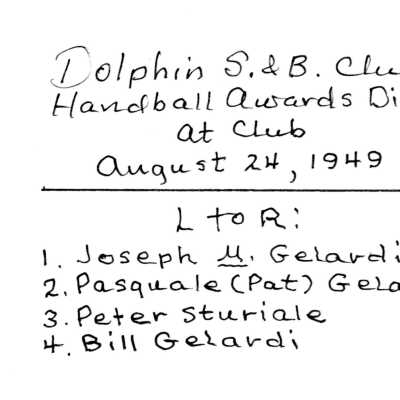 Dolphin S. & B. Clu
Handball Awards Di
at Club
August 24, 1949
L to R:
1. Joseph M. Gelardi
2. Pasquale (Pat) Gela
3. Peter Sturiale
4. Bill Gelardi